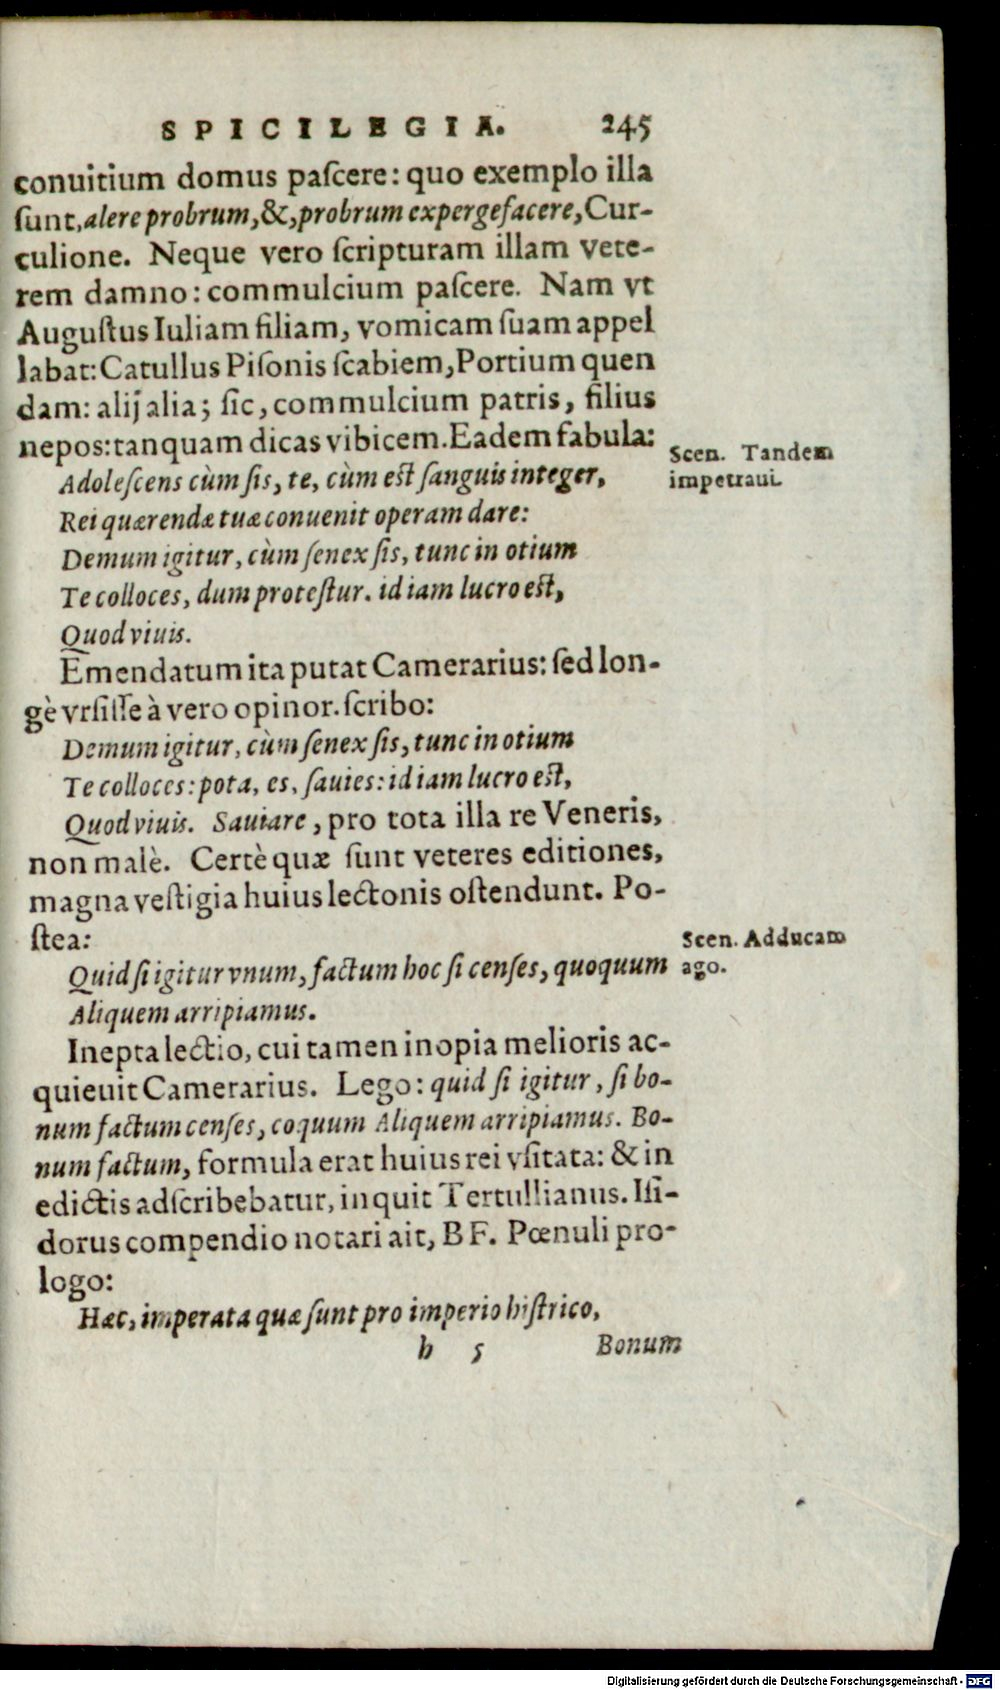 SPICILEGIA. 245
conuitium domus paſcere: quo exemplo illa
ſunt, alere probrum, &, probrum expergefacere, Cur-
culione. Neque vero ſcripturam illam vete-
rem damno: commulcium paſcere. Nam vt
Auguſtus Iuliam filiam, vomicam ſuam appel
labat: Catullus Piſonis ſcabiem, Portium quen
dam: alij alia; ſic, commulcium patris, filius
nepos: tanquam dicas vibicem. Eadem fabula:
Scen. Tandem
impetraui.
Adoleſcens cùm ſis, te, cùm eſt ſanguis integer,
Rei quærendæ tuæ conuenit operam dare:
Demum igitur, cùm ſenex ſis, tunc in otium
Te colloces, dum proteſtur. id iam lucro eſt,
Quod viuis.
Emendatum ita putat Camerarius: ſed lon-
gè vrſiſſe à vero opinor. ſcribo:
Demum igitur, cùm ſenex ſis, tunc in otium
Te colloces: pota, es, ſauies: id iam lucro eſt,
Quod viuis. Sauiare, pro tota illa re Veneris,
non malè. Certè quæ ſunt veteres editiones,
magna veſtigia huius lectonis oſtendunt. Po-
ſtea:
Scen. Adducam
ago.
Quid ſi igitur vnum, factum hoc ſi cenſes, quoquum
Aliquem arripiamus.
Inepta lectio, cui tamen inopia melioris ac-
quieuit Camerarius. Lego: quid ſi igitur, ſi bo-
num factum cenſes, coquum Aliquem arripiamus. Bo-
num factum, formula erat huius rei vſitata: & in
edictis adſcribebatur, inquit Tertullianus. Iſi-
dorus compendio notari ait, BF. Pœnuli pro-
logo:
Hæc, imperata quæ ſunt pro imperio hiſtrico,
h 5 Bonum
Digitalisierung gefördert durch die Deutsche Forschungsgemeinschaft - DFG